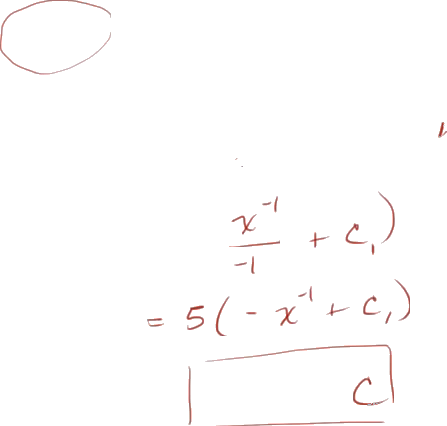 x^-1/-1 + C₁)
= 5(-x^-1 + C₁)
C